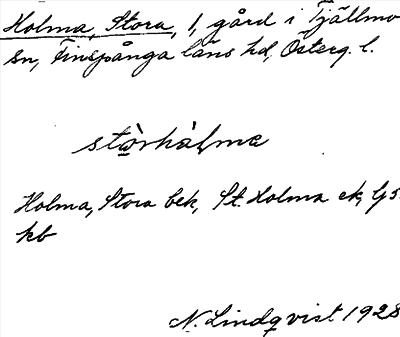 Holma, Stora, 1, gård i Tjällmo
sn, Finspånga läns hd, Österg. l.
stòrhàlma
Holma, Stora bek, St. Holma ek, ljs.
kb
N. Lindqvist 1928